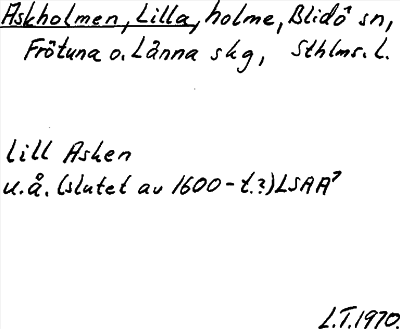 Askholmen, Lilla, holme, Blidö sn,
Frötuna o. Länna skg, Sthlms. l.
Lill Asken
u.å. (slutet av 1600-t.?) LSAA7
L.T. 1970.